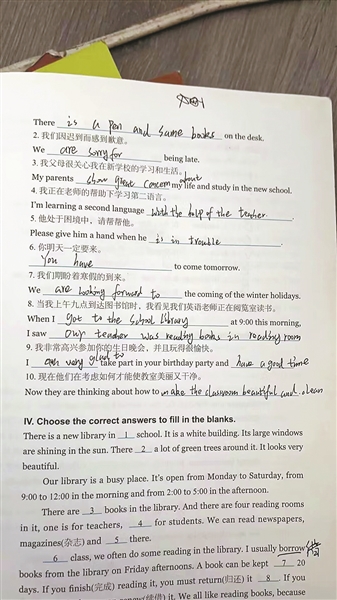 There is a pen and some books on the desk.
2. 我们因迟到而感到歉意。
We are sorry for being late.
3. 我父母很关心我在新学校的学习和生活。
My parents show great concern about my life and study in the new school.
4. 我正在老师的帮助下学习第二语言。
I'm learning a second language with the help of the teacher.
5. 他处于困境中，请帮帮他。
Please give him a hand when he is in trouble.
6. 你明天一定要来。
You have to come tomorrow.
7. 我们期盼着寒假的到来。
We are looking forward to the coming of the winter holidays.
8. 当我上午九点到达图书馆时，我看见我们英语老师正在阅览室读书。
When I got to the school library at 9:00 this morning,
I saw our teacher was reading books in reading room
9. 我非常高兴参加你的生日晚会，并且玩得很愉快。
I am very glad to take part in your birthday party and have a good time
10. 现在他们在考虑如何才能使教室美丽又干净。
Now they are thinking about how to make the classroom beautiful and clean
IV. Choose the correct answers to fill in the blanks.
There is a new library in 1 school. It is a white building. Its large windows
are shining in the sun. There 2 a lot of green trees around it. It looks very
beautiful.
Our library is a busy place. It's open from Monday to Saturday, from
9:00 to 12:00 in the morning and from 2:00 to 5:00 in the afternoon.
There are 3 books in the library. And there are four reading rooms
in it, one is for teachers, 4 for students. We can read newspapers,
magazines(杂志) and 5 there.
6 class, we often do some reading in the library. I usually borrow
books from the library on Friday afternoons. A book can be kept 7 20
days. If you finish(完成) reading it, you must return(归还) it 8 . If you
(续借) it. We all like reading books, because